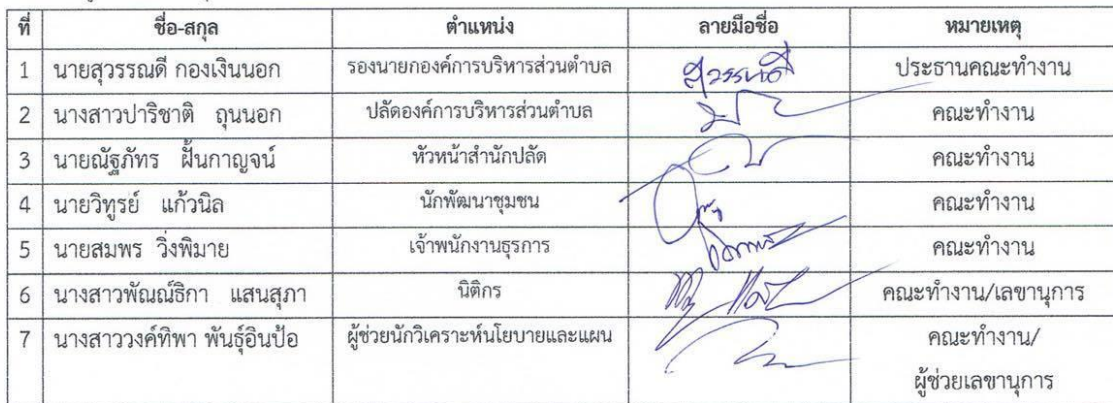 ที่ ชื่อ-สกุล ตำแหน่ง ลายมือชื่อ หมายเหตุ
1 นายสุวรรณดี กองเงินนอก รองนายกองค์การบริหารส่วนตำบล สุวรรณดี ประธานคณะทำงาน
2 นางสาวปาริชาติ ถุนนอก ปลัดองค์การบริหารส่วนตำบล คณะทำงาน
3 นายณัฐภัทร ฝั้นกาญจน์ หัวหน้าสำนักปลัด คณะทำงาน
4 นายวิทูรย์ แก้วนิล นักพัฒนาชุมชน คณะทำงาน
5 นายสมพร วิ่งพิมาย เจ้าพนักงานธุรการ คณะทำงาน
6 นางสาวพัณณ์ธิกา แสนสุภา นิติกร คณะทำงาน/เลขานุการ
7 นางสาววงค์ทิพา พันธุ์อินป้อ ผู้ช่วยนักวิเคราะห์นโยบายและแผน คณะทำงาน/
ผู้ช่วยเลขานุการ